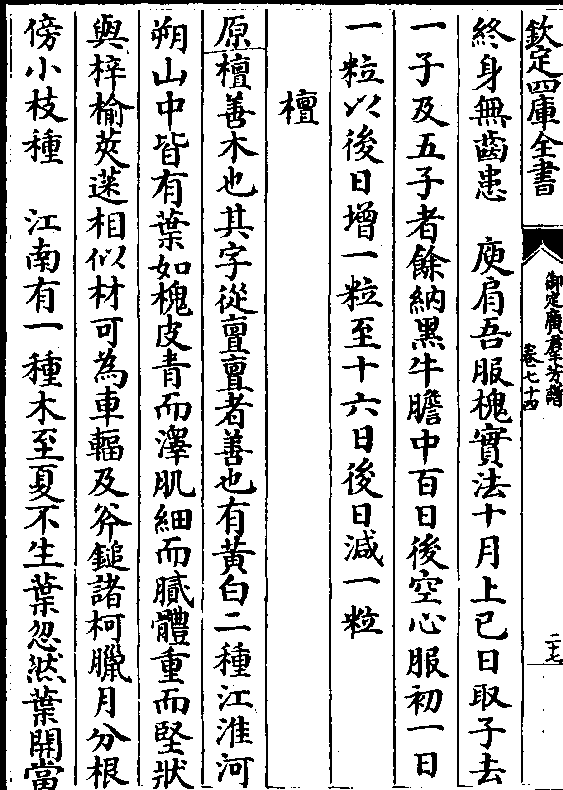 欽定四庫全書
御定廣羣芳譜
卷七十四
二十七
終身無齒患　庾肩吾服槐實法十月上巳日取子去
一子及五子者餘納黑牛膽中百日後空心服初一日
一粒以後日增一粒至十六日後日減一粒
檀
原檀善木也其字從亶亶者善也有黃白二種江淮河
朔山中皆有葉如槐皮青而澤肌細而膩體重而堅狀
與梓榆莢蒾相似材可為車輻及斧鎚諸柯臘月分根
傍小枝種　江南有一種木至夏不生葉忽然葉開當